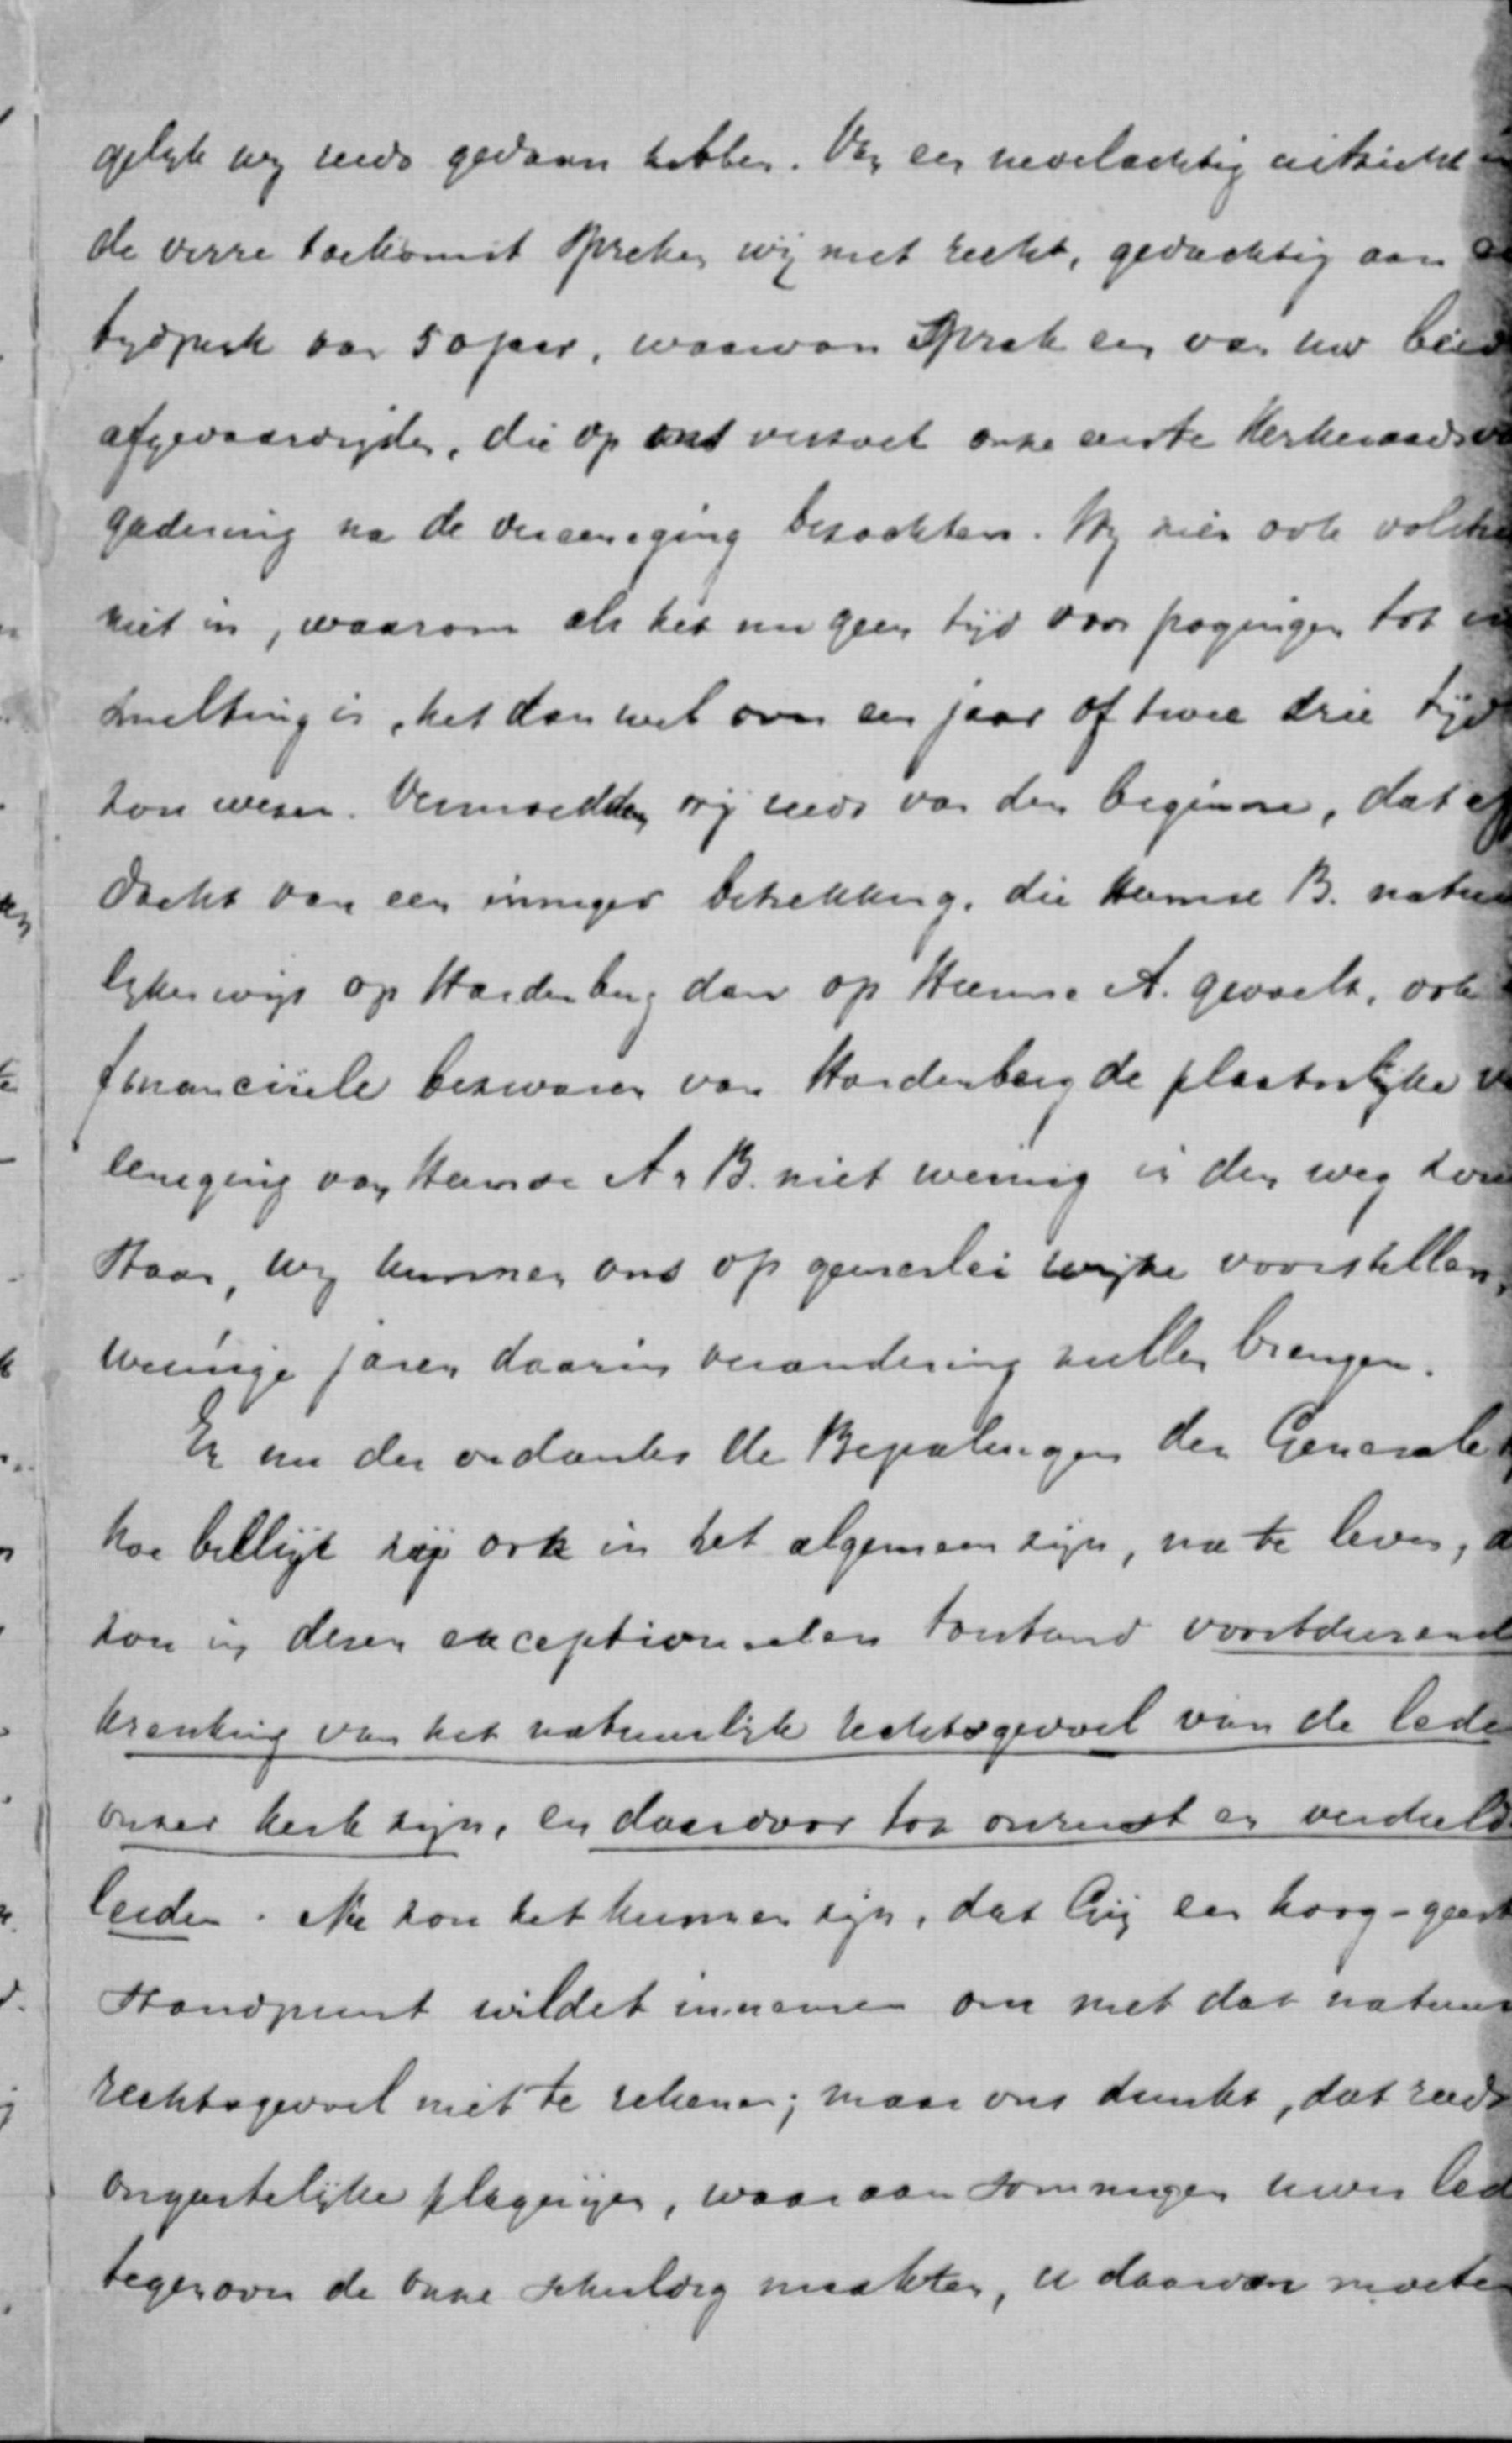 gelijk wij reeds gedaan hebben. Van een nevelachtig uitzicht in
de verre toekomst spreken wij met recht, gedachtig aan
tijdperk van 50 jaar, waarvan sprak een van uw beide
afgevaardigden, die op ons verzoek onze eerste Kerkeraadsver
gadering na de vereeniging bezochten. Wij zien ook volstrekt
niet in, waarom als het nu geen tijd voor pogingen tot in
smelting is, het dan wel over een jaar of twee drie tijd
zou wezen. Vermoedden wij reeds van den beginne, dat
dacht van een inniger betrekking, die Heemse B. natuur
lijkerwijs op Hardenberg dan op Heemse A. gevoelt, ook
financiëele bezwaren van Hardenberg de plaatselijke ver
eeniging van Heemse A & B. niet weinig in den weg zou
staan, wij kunnen ons op generlei wijze voorstellen,
weinige jaren daarin verandering zullen brengen.
En nu der ordantes de Bepalingen der Generale
hoe billijk zij ook in het algemeen zijn, na te leven,
zou in dezen exceptioneelen toestand voortdurend
krenking van het natuurlijk rechtsgevoel van de lede
onzer kerk zijn, en daardoor tot onrust en verdeeld
leiden. Nu zou het kunnen zijn, dat Gij een hoog-geest
standpunt wildet innemen om met dat natuur
rechtsgevoel niet te rekenen; maar ons dunkt, dat reeds
ongeestelijke plagerijen, waaraan sommigen uwer led
tegenover de onze schuldig maakten, u daarvan moeten